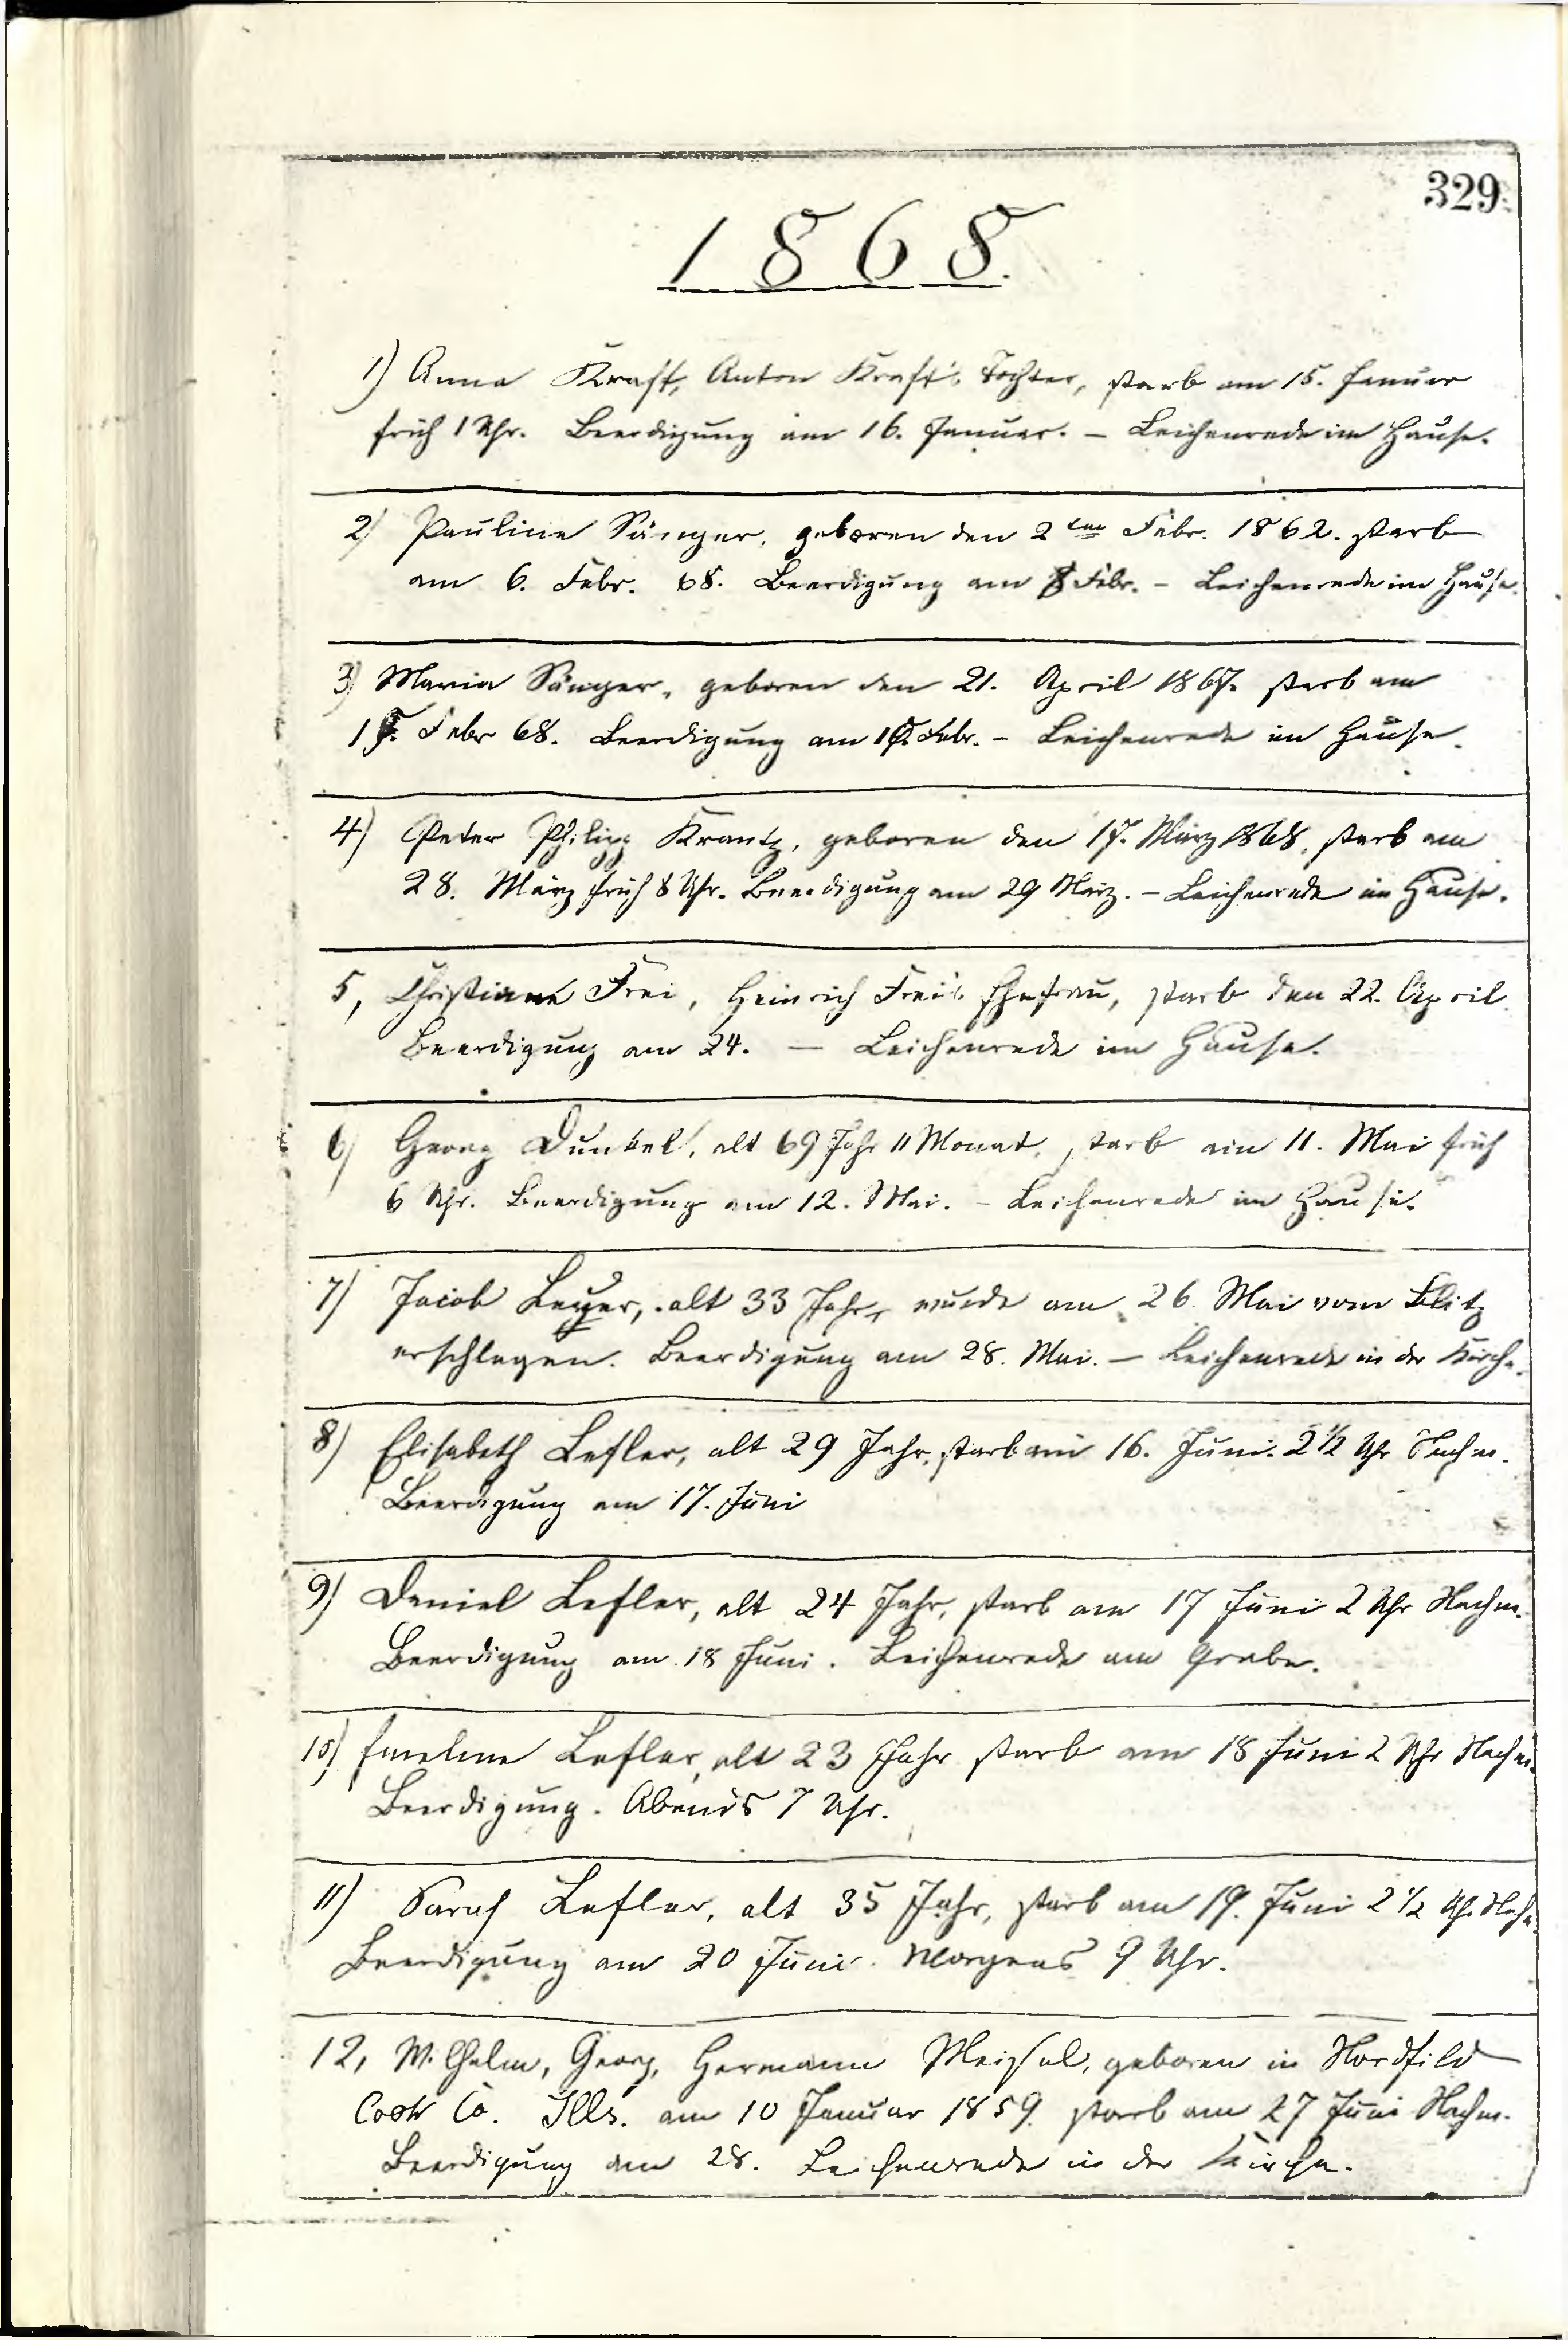 329
1868.
1) Anna Kraft, Anton Kraft's Tochter, starb am 15. Januar
früh 1 Uhr. Beerdigung am 16. Januar. – Leichenrede im Hause.
2) Pauline Sänger, geboren den 2ten Febr. 1862. starb
am 6. Febr. 68. Beerdigung am 8 Febr. – Leichenrede im Hause.
3) Maria Sänger, geboren den 21. April 1867. starb am
Febr 68. Beerdigung am Febr. – Leichenrede im Hause.
4) Peter Philipp Krantz, geboren den 17. März 1868, starb am
28. März früh 8 Uhr. Beerdigung am 29 März. – Leichenrede im Hause.
5, Christiane Frei, Heinrich Frei's Ehefrau, starb den 22. April.
Beerdigung am 24. — Leichenrede im Hause.
6) Georg Dunkel, alt 69 Jahr 11 Monat, starb am 11. Mai früh
6 Uhr. Beerdigung am 12. Mai. – Leichenrede im Hause.
7) Jacob Leyer, alt 33 Jahr, wurde am 26. Mai vom Blitz
erschlagen. Beerdigung am 28. Mai. – Leichenrede in der Kirche.
8) Elisabeth Lefler, alt 29 Jahr, starb am 16. Juni. 2 1/2 Uhr Nachm.
Beerdigung am 17. Juni
9) Daniel Lefler, alt 24 Jahr, starb am 17 Juni 2 Uhr Nachm.
Beerdigung am 18 Juni. Leichenrede am Grabe.
10) Emeline Lefler, alt 23 Jahr starb am 18 Juni 2 Uhr Nachm.
Beerdigung. Abends 7 Uhr.
11) Sarah Lefler, alt 35 Jahr, starb am 19. Juni 2 1/2 Uhr Nachm.
Beerdigung am 20 Juni. Morgens 9 Uhr.
12, Wilhelm, Georg, Hermann Meisel, geboren in Nordfild
Cook Co. Ills. am 10 Januar 1859. starb am 27 Juni Nachm.
Beerdigung am 28. Leichenrede in der Kirche.